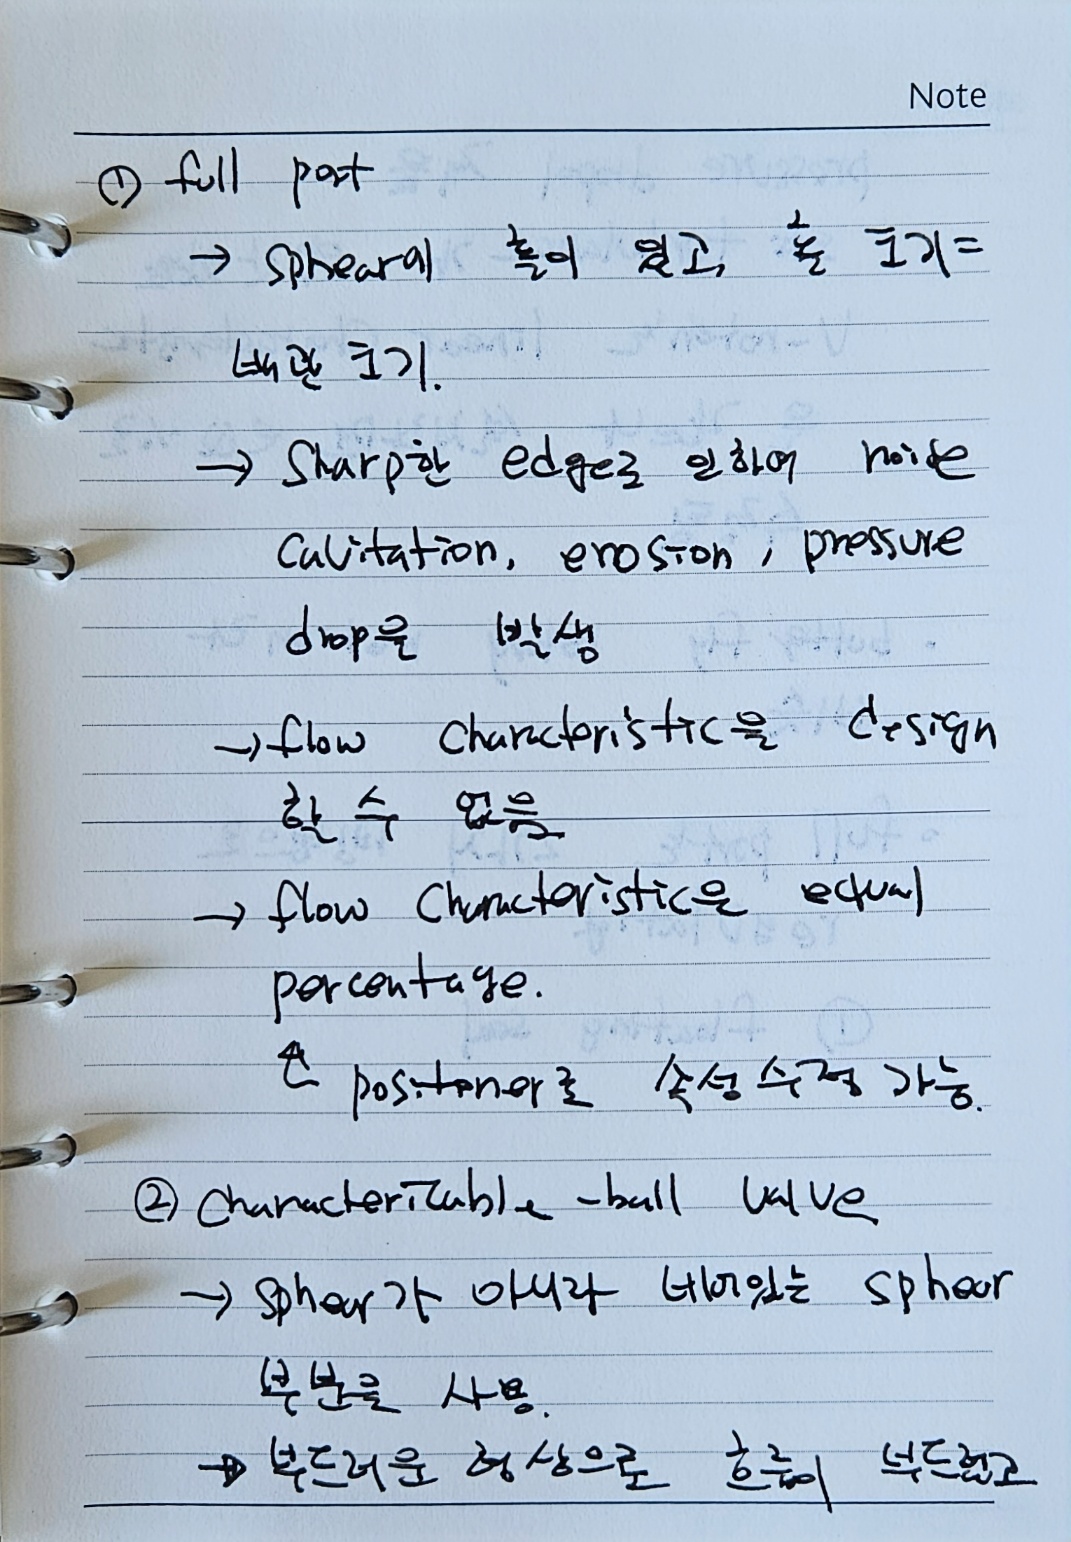 Note
① full port
→ sphear에 홀이 있고, 홀 크기=
배관 크기.
→ Sharp한 edge로 인하여 noise
cavitation, erosion, pressure
drop을 발생
→ flow characteristic을 design
할 수 없음
→ flow characteristic은 equal
percentage.
positioner로 속성 수정 가능.
② characterizable -ball valve
→ sphear가 아니라 sphear
부분을 사용.
→ 부드러운 형상으로 흐름이 부드럽고